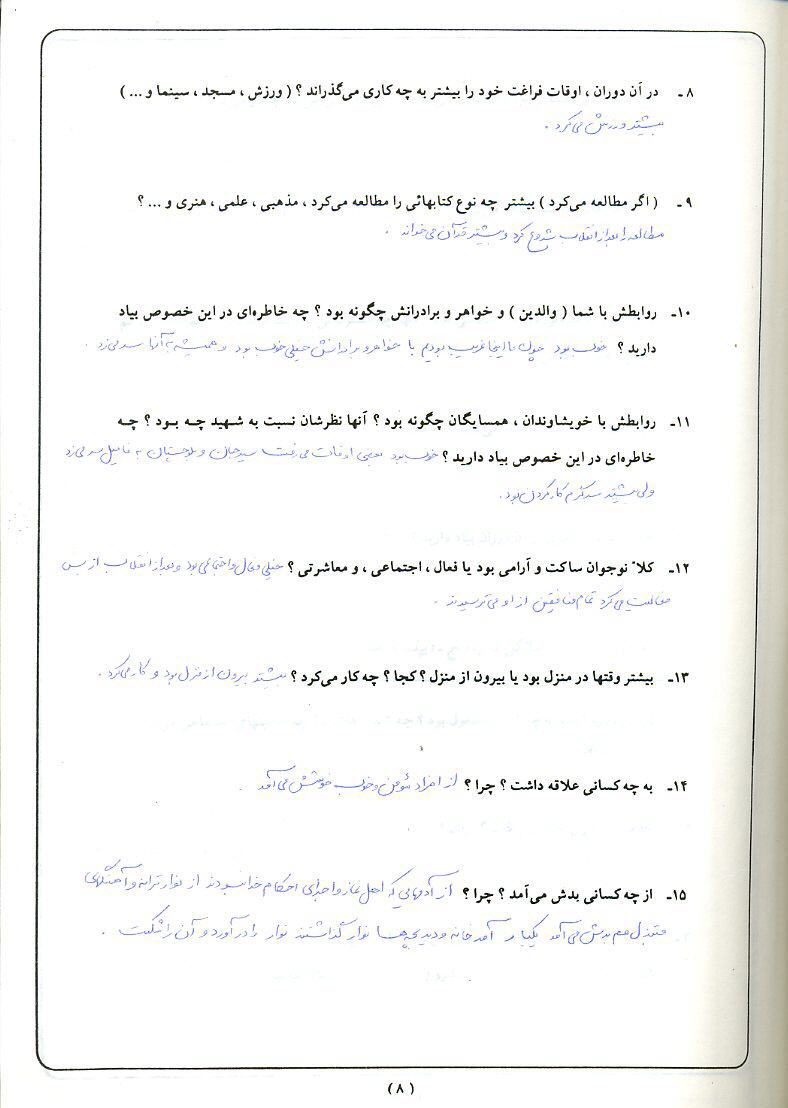 ۸ـ در آن دوران ، اوقات فراغت خود را بیشتر به چه کاری می‌گذراند ؟ ( ورزش ، مسجد ، سینما و ... )
بیشتر ورزش می‌کرد .
۹ـ ( اگر مطالعه می‌کرد ) بیشتر چه نوع کتابهائی را مطالعه می‌کرد ، مذهبی ، علمی ، هنری و ... ؟
مطالعه را بعد از انقلاب شروع کرد و بیشتر قرآن می‌خواند .
۱۰ـ روابطش با شما ( والدین ) و خواهر و برادرانش چگونه بود ؟ چه خاطره‌ای در این خصوص بیاد
دارید ؟ خوب بود چون ما اینجا غریب بودیم با خواهر و برادرانش خیلی خوب بود و همیشه به آنها سر می‌زد .
۱۱ـ روابطش با خویشاوندان ، همسایگان چگونه بود ؟ آنها نظرشان نسبت به شهید چـه بـود ؟ چـه
خاطره‌ای در این خصوص بیاد دارید ؟ خوب بود بعضی اوقات می‌رفت سیرجان و بلوچستان به فامیل سر می‌زد
ولی بیشتر سرگرم کار کردن بود .
۱۲ـ کلاً نوجوان ساکت و آرامی بود یا فعال ، اجتماعی ، و معاشرتی ؟ خیلی فعال و اجتماعی بود و بعد از انقلاب از بس
فعالیت می‌کرد تمام منافقین از او می‌ترسیدند .
۱۳ـ بیشتر وقتها در منزل بود یا بیرون از منزل ؟ کجا ؟ چه کار می‌کرد ؟ بیشتر بیرون از منزل بود و کار می‌کرد .
۱۴ـ به چه کسانی علاقه داشت ؟ چرا ؟ از افراد مؤمن و خوب خوشش می‌آمد .
۱۵ـ از چه کسانی بدش می‌آمد ؟ چرا ؟ از آدمهایی که اهل نماز و اجرای احکام خدا نبودند از نوار ترانه و آهنگهای
مبتذل هم بدش می‌آمد یکبار آمد خانه و دید بچه‌ها نوار گذاشتند نوار را درآورد و آن را شکست .
( ۸ )